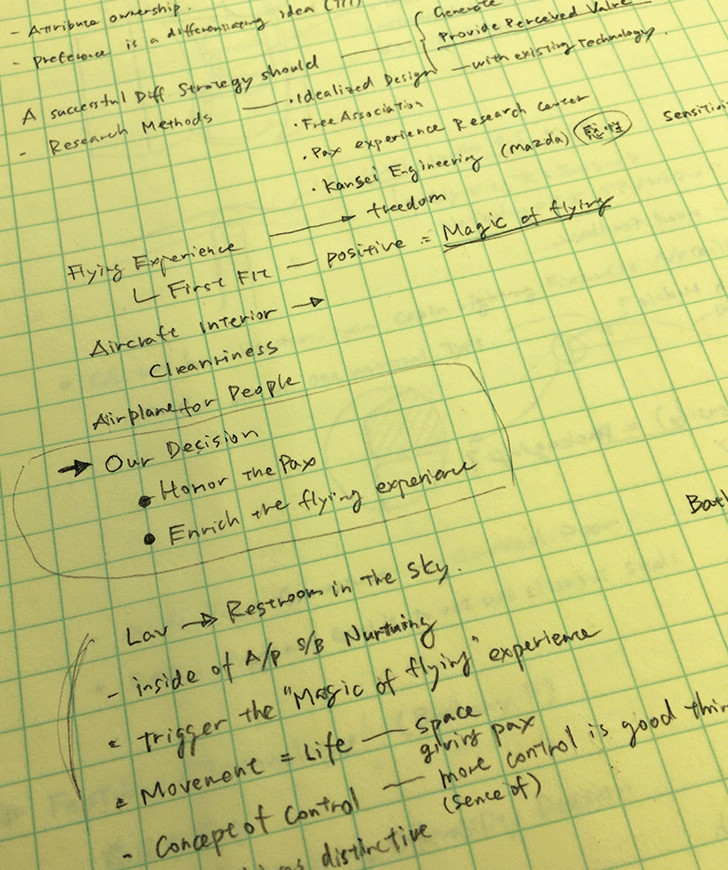 - Attribute ownership.
- Preference is a differentiating idea (???)
Generate
A successful Diff Strategy should
Provide Perceived Value
- Research Methods
• Idealized Design — with existing technology.
• Free Association
• Pax experience Research Center
• Kansei Engineering (Mazda) 感性
Flying Experience → freedom
First Flt — positive = Magic of flying
Aircraft Interior →
Cleanliness
Airplane for People
→ Our Decision
• Honor the Pax
• Enrich the flying experience
Lav → Restroom in the sky.
- inside of A/P S/B Nurturing
• trigger the "Magic of flying" experience
• Movement = Life — space
giving pax
- Concept of control — more control is good
(sence of)
distinctive